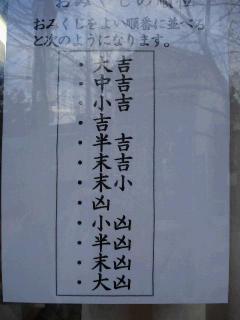 おみくじの順位
おみくじをよい順番に並べる
と次のようになります。
・大吉
・中吉
・小吉
・吉
・半吉
・末吉
・末小
・凶
・小凶
・半凶
・末凶
・大凶